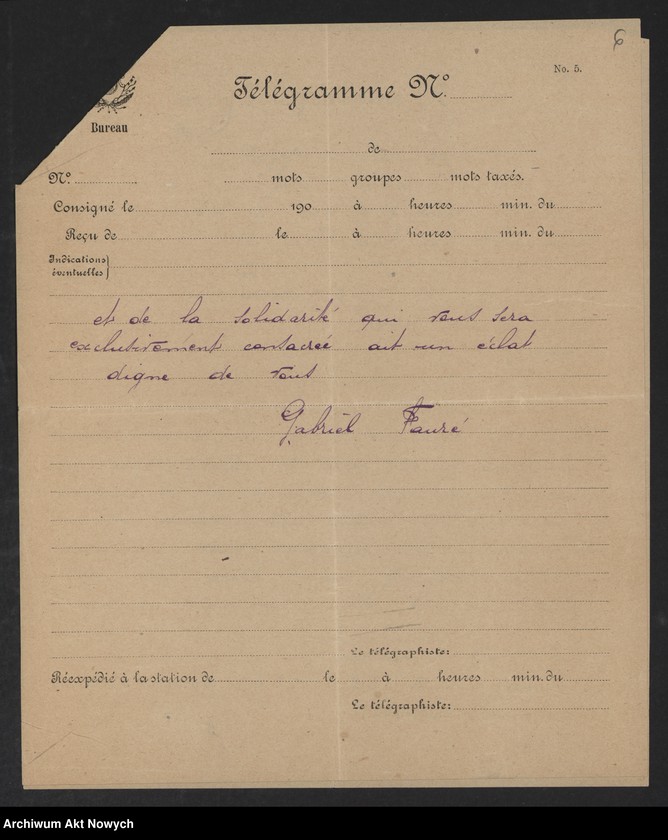 6
No. 5.
Télégramme Nº
Bureau
de
Nº mots groupes mots taxés.
Consigné le 190 à heures min. du
Reçu de le à heures min. du
Indications
éventuelles
et de la solidarité qui vous sera
exclusivement consacrée ait un éclat
digne de vous
Gabriel Fauré
Le télégraphiste:
Réexpédié à la station de le à heures min. du
Le télégraphiste:
Archiwum Akt Nowych